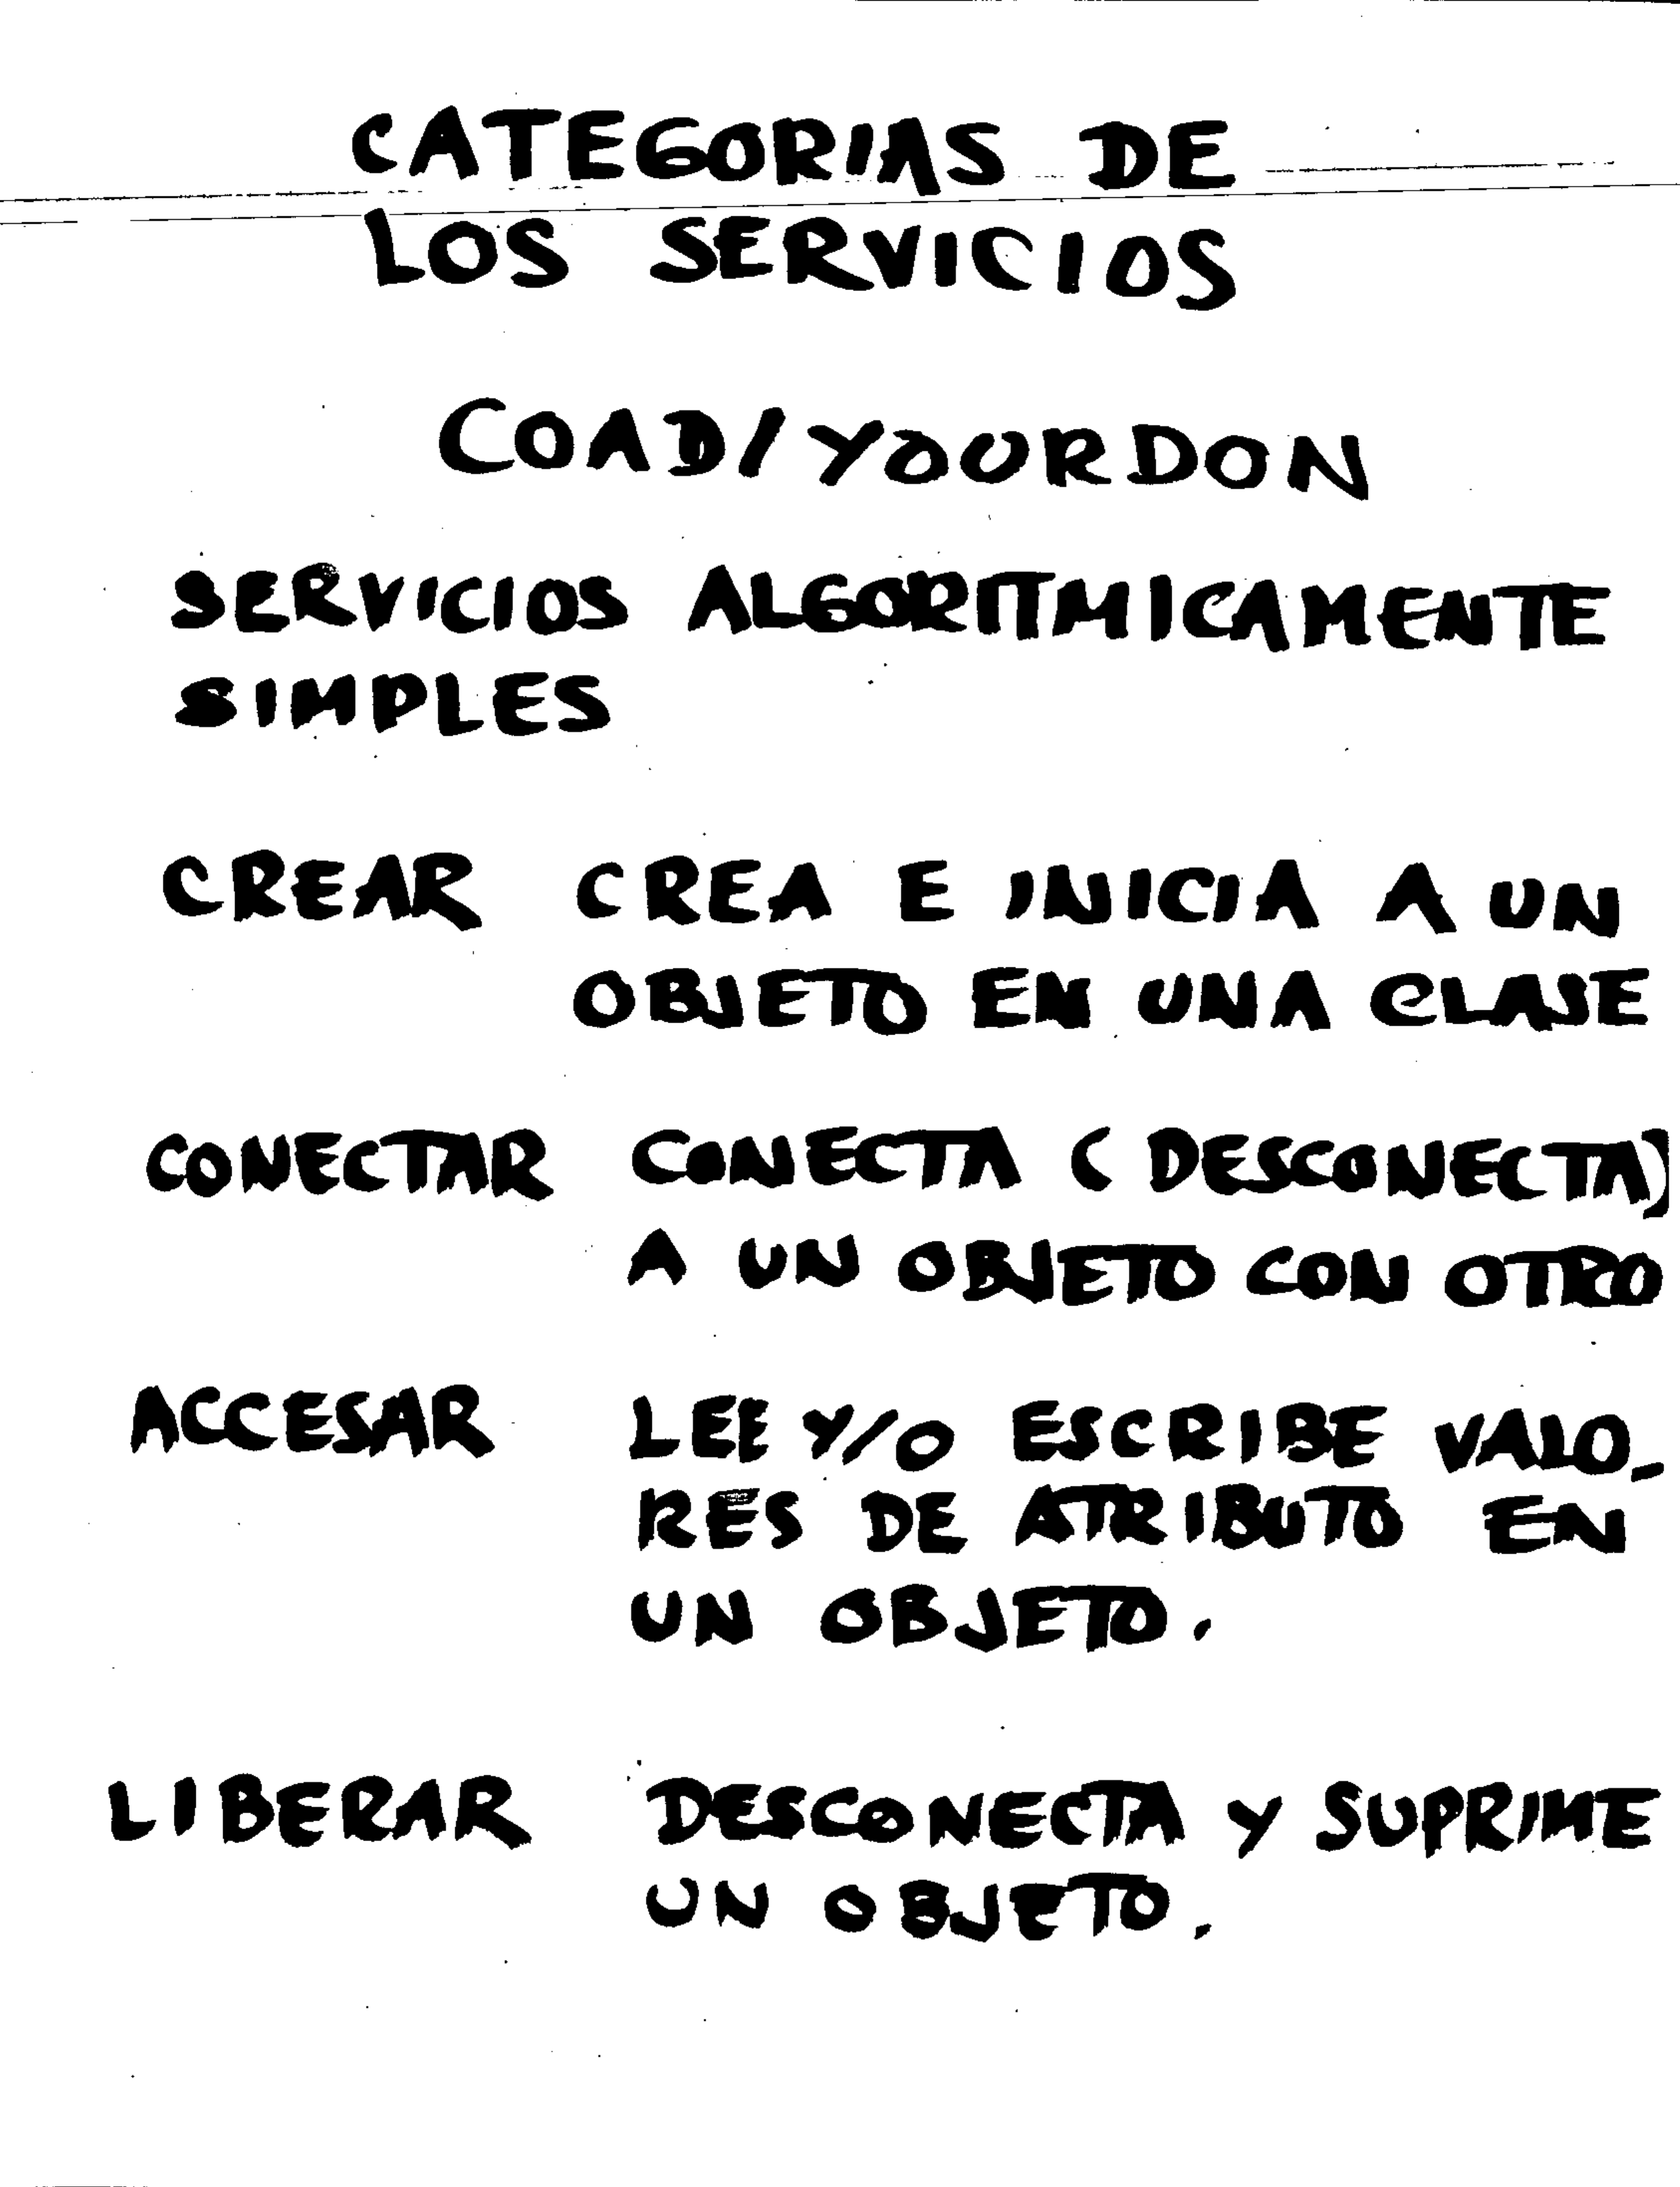 CATEGORIAS DE
LOS SERVICIOS
COAD/YOURDON
SERVICIOS ALGORITMICAMENTE
SIMPLES
CREAR CREA E INICIA A UN
OBJETO EN UNA CLASE
CONECTAR CONECTA (DESCONECTA)
A UN OBJETO CON OTRO
ACCESAR LEE Y/O ESCRIBE VALO_
RES DE ATRIBUTO EN
UN OBJETO.
LIBERAR DESCONECTA Y SUPRIME
UN OBJETO.